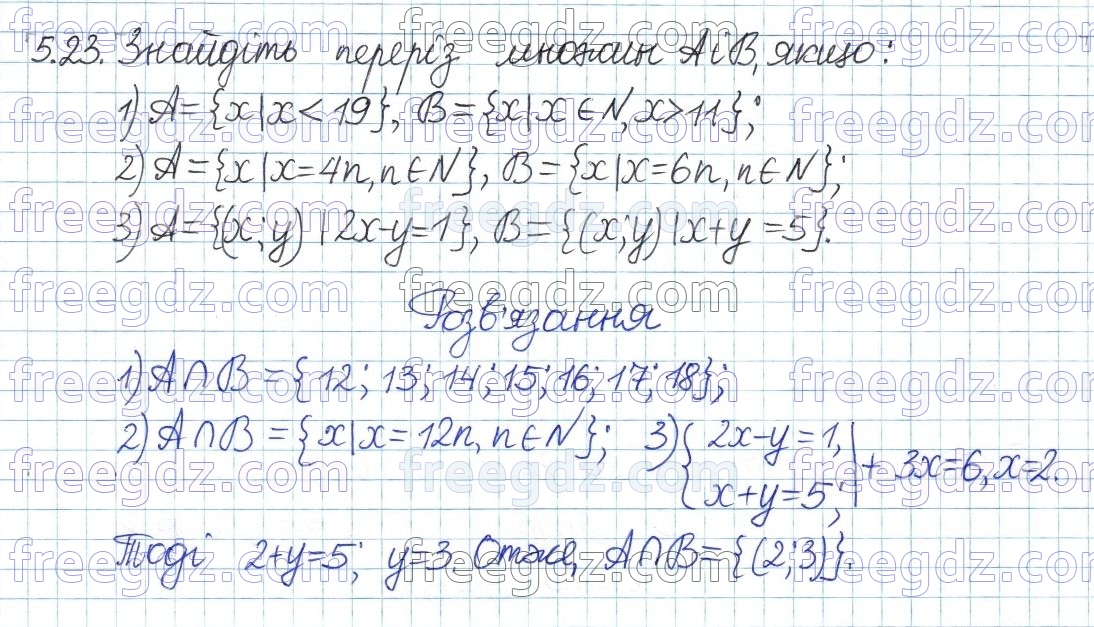 5.23. Знайдіть переріз множин A і B, якщо:
1) A={x|x<19}, B={x|x∈N, x>11};
2) A={x|x=4n, n∈N}, B={x|x=6n, n∈N};
3) A={(x;y)|2x-y=1}, B={(x;y)|x+y=5}.
Розв'язання
1) A∩B={12; 13; 14; 15; 16; 17; 18};
2) A∩B={x|x=12n, n∈N}; 3) {2x-y=1, x+y=5;| + 3x=6, x=2.
Тоді 2+y=5; y=3. Отже, A∩B={(2;3)}.
freegdz.com